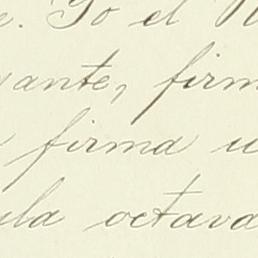 e. Yo el
ante, firm
firma u
ula octava